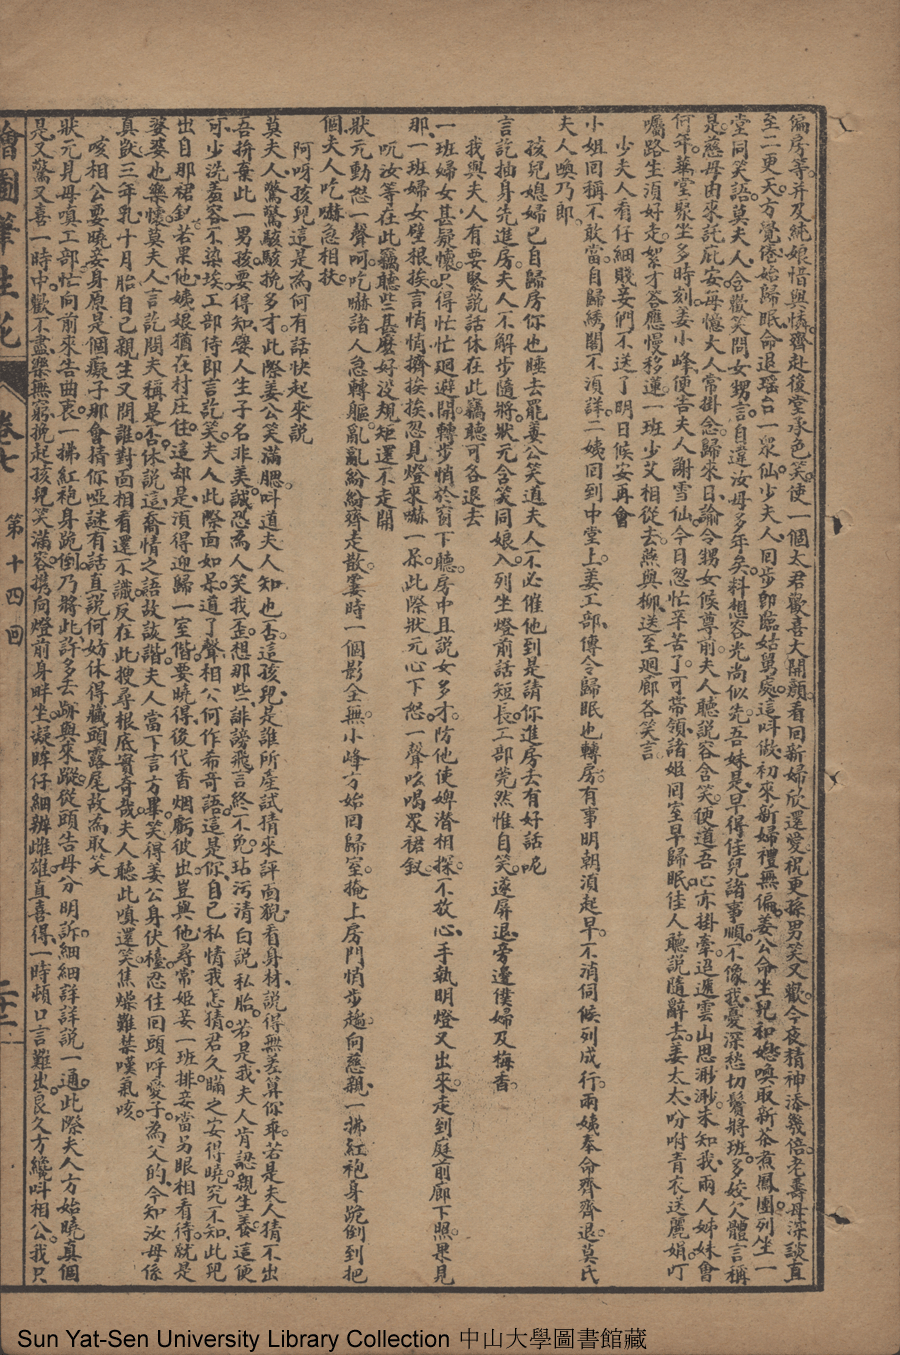 偏房等。并及純娘惜與憐。齊赴後堂承色笑。使一個太君歡喜大開顏。看回新婦欣還愛。祝更孫男笑又歡。今夜精神添幾倍。老壽母深談直
至二更天。方覺倦始歸眠。命退瑤台一眾仙。少夫人同步郎臨姑舅處。這叫做初來新婦禮無偏。姜公命坐兒和媳。喚取新茶煮鳳團。列坐一
堂同笑語。莫夫人含歡笑問女甥言。自違汝母多年矣。料想容光尚似先。吾妹是早得佳兒諸事順。不像我憂深愁切鬢將班。多姣父體言稱
是。慈母由來託庇安。每憶大人常掛念。歸來日諭令甥女候尊前。夫人聽說容含笑。便道吾心亦掛牽。迢遞雲山思渺渺。未知我兩人姊妹會
何年。華堂聚坐多時刻。姜小峰便告夫人謝雪仙。今日忽忙辛苦了。可帶領諸姐回室早歸眠。佳人聽說隨辭去。姜太太吩咐青衣送麗娟。叮
囑路生湏好走。絮才答應慢移蓮。一班少艾相從去。燕與柳送至迴廊各笑言
少夫人看仔細賤妾們不送了明日候安再會
小姐回稱不敢當。自歸綉閣不湏詳。二姨回到中堂上。姜工部傳令歸眠也轉房。有事明朝湏起早。不消伺候列成行。兩姨奉命齊齊退。莫氏
夫人喚乃郎。
孩兒媳婦已自歸房你也睡去罷姜公笑道夫人不必催他到是請你進房去有好話呢
言訖抽身先進房。夫人不解步隨將。狀元含笑同娘入。列坐燈前話短長。工部莞然惟自笑。遂屏退旁邊僕婦及梅香。
我與夫人有要緊說話休在此竊聽可各退去
一班婦女甚疑懷。只得忙忙迴避開。轉步悄於窗下聽。房中且說女多才。防他使婢潛相探。不放心手執明燈又出來。走到庭前廊下照。果見
那一班婦女壁根挨。言悄悄擠挨挨。忽見燈來嚇一呆。此際狀元心下怒。一聲吆喝眾裙釵。
吭汝等在此竊聽些甚麼好沒規矩還不走開
狀元動怒一聲呵。吃嚇諸人急轉軀。亂亂紛紛齊走散。霎時一個影全無。小峰方始回歸室。掩上房門悄步趨。向慈親一拂紅袍身跪倒。到把
個夫人吃嚇急相扶。
阿呀孩兒這是為何有話快起來說
莫夫人驚驚駭駭挽多才。此際姜公笑滿腮。叫道夫人知也否。這孩兒是誰所產試猜來。評面貌看身材。說得無差算你乖。若是夫人猜不出
吾拚棄此一男孩。要得知嬰人生子名非美。誠恐為人笑我歪。想那些誹謗飛言終不免。玷污清白說私胎。若是我夫人肯認親生養。這便
可少洗羞容不染埃。工部侍郎言訖笑。夫人此際面如呆。道了聲相公何作希奇語。這是你自己私情我怎猜。君久瞞之安得曉。究不知此兒
出自那裙釵。若果他姨娘猶在村庄住。這却是湏得迎歸一室偕。要曉得後代香烟虧彼出。豈與他尋常姬妾一班排。妾當另眼相看待。就是
婆婆也樂懷。莫夫人言訖問夫稱是否。休說這喬情之語故詼諧。夫人當下言方畢。笑得姜公身伏檯。忍住回頭呼愛子。為父的今知汝母係
真獃。三年乳十月胎。自己親生又問誰。對面相看還不識。反在此搜尋根底實奇哉。夫人聽此嗔還笑。焦燥難禁嘆氣咳。
咳相公要曉妾身原是個癡子那會猜你啞謎有話真說何妨休得藏頭露尾故為取笑
狀元見母嗔工部。忙向前來告曲衷。一拂紅袍身跪倒。乃將此許多去歸與來蹤。從頭告母分明訴。細細詳詳說一通。此際夫人方始曉。真個
是又驚又喜一時中。歡不盡樂無窮。挽起孩兒笑滿容。携向燈前身畔坐。凝眸仔細辨雌雄。直喜得一時頓口言難出。良久方纔叫相公。我只
繪圖筆生花
卷七
第十四回
二十二
Sun Yat-Sen University Library Collection 中山大學圖書館藏